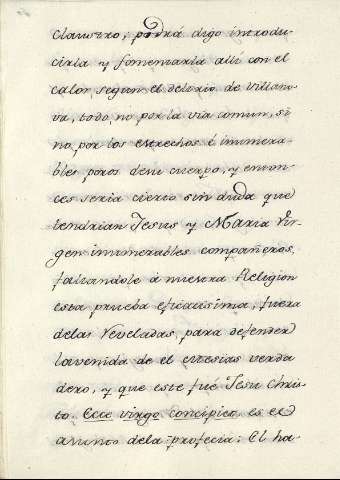 claustro, podrá digo introdu-
cirla y fomentarla alli con el
calor segun el delirio de Villano-
va, todo no por la via comun, si
no por los estrechos é inumera-
bles poros de su cuerpo, y enton-
ces seria cierto sin duda que
tendrian Jesus y Maria Vir-
gen inumerables compañeros,
faltandole á nuestra Religion
esta prueba eficacisima, fuera
delas Reveladas, para defender
la venida de el mesias verda
dero, y que este fué Jesu Chris-
to. Ecce virgo concipiet es el
asunto dela profecia: El ha-